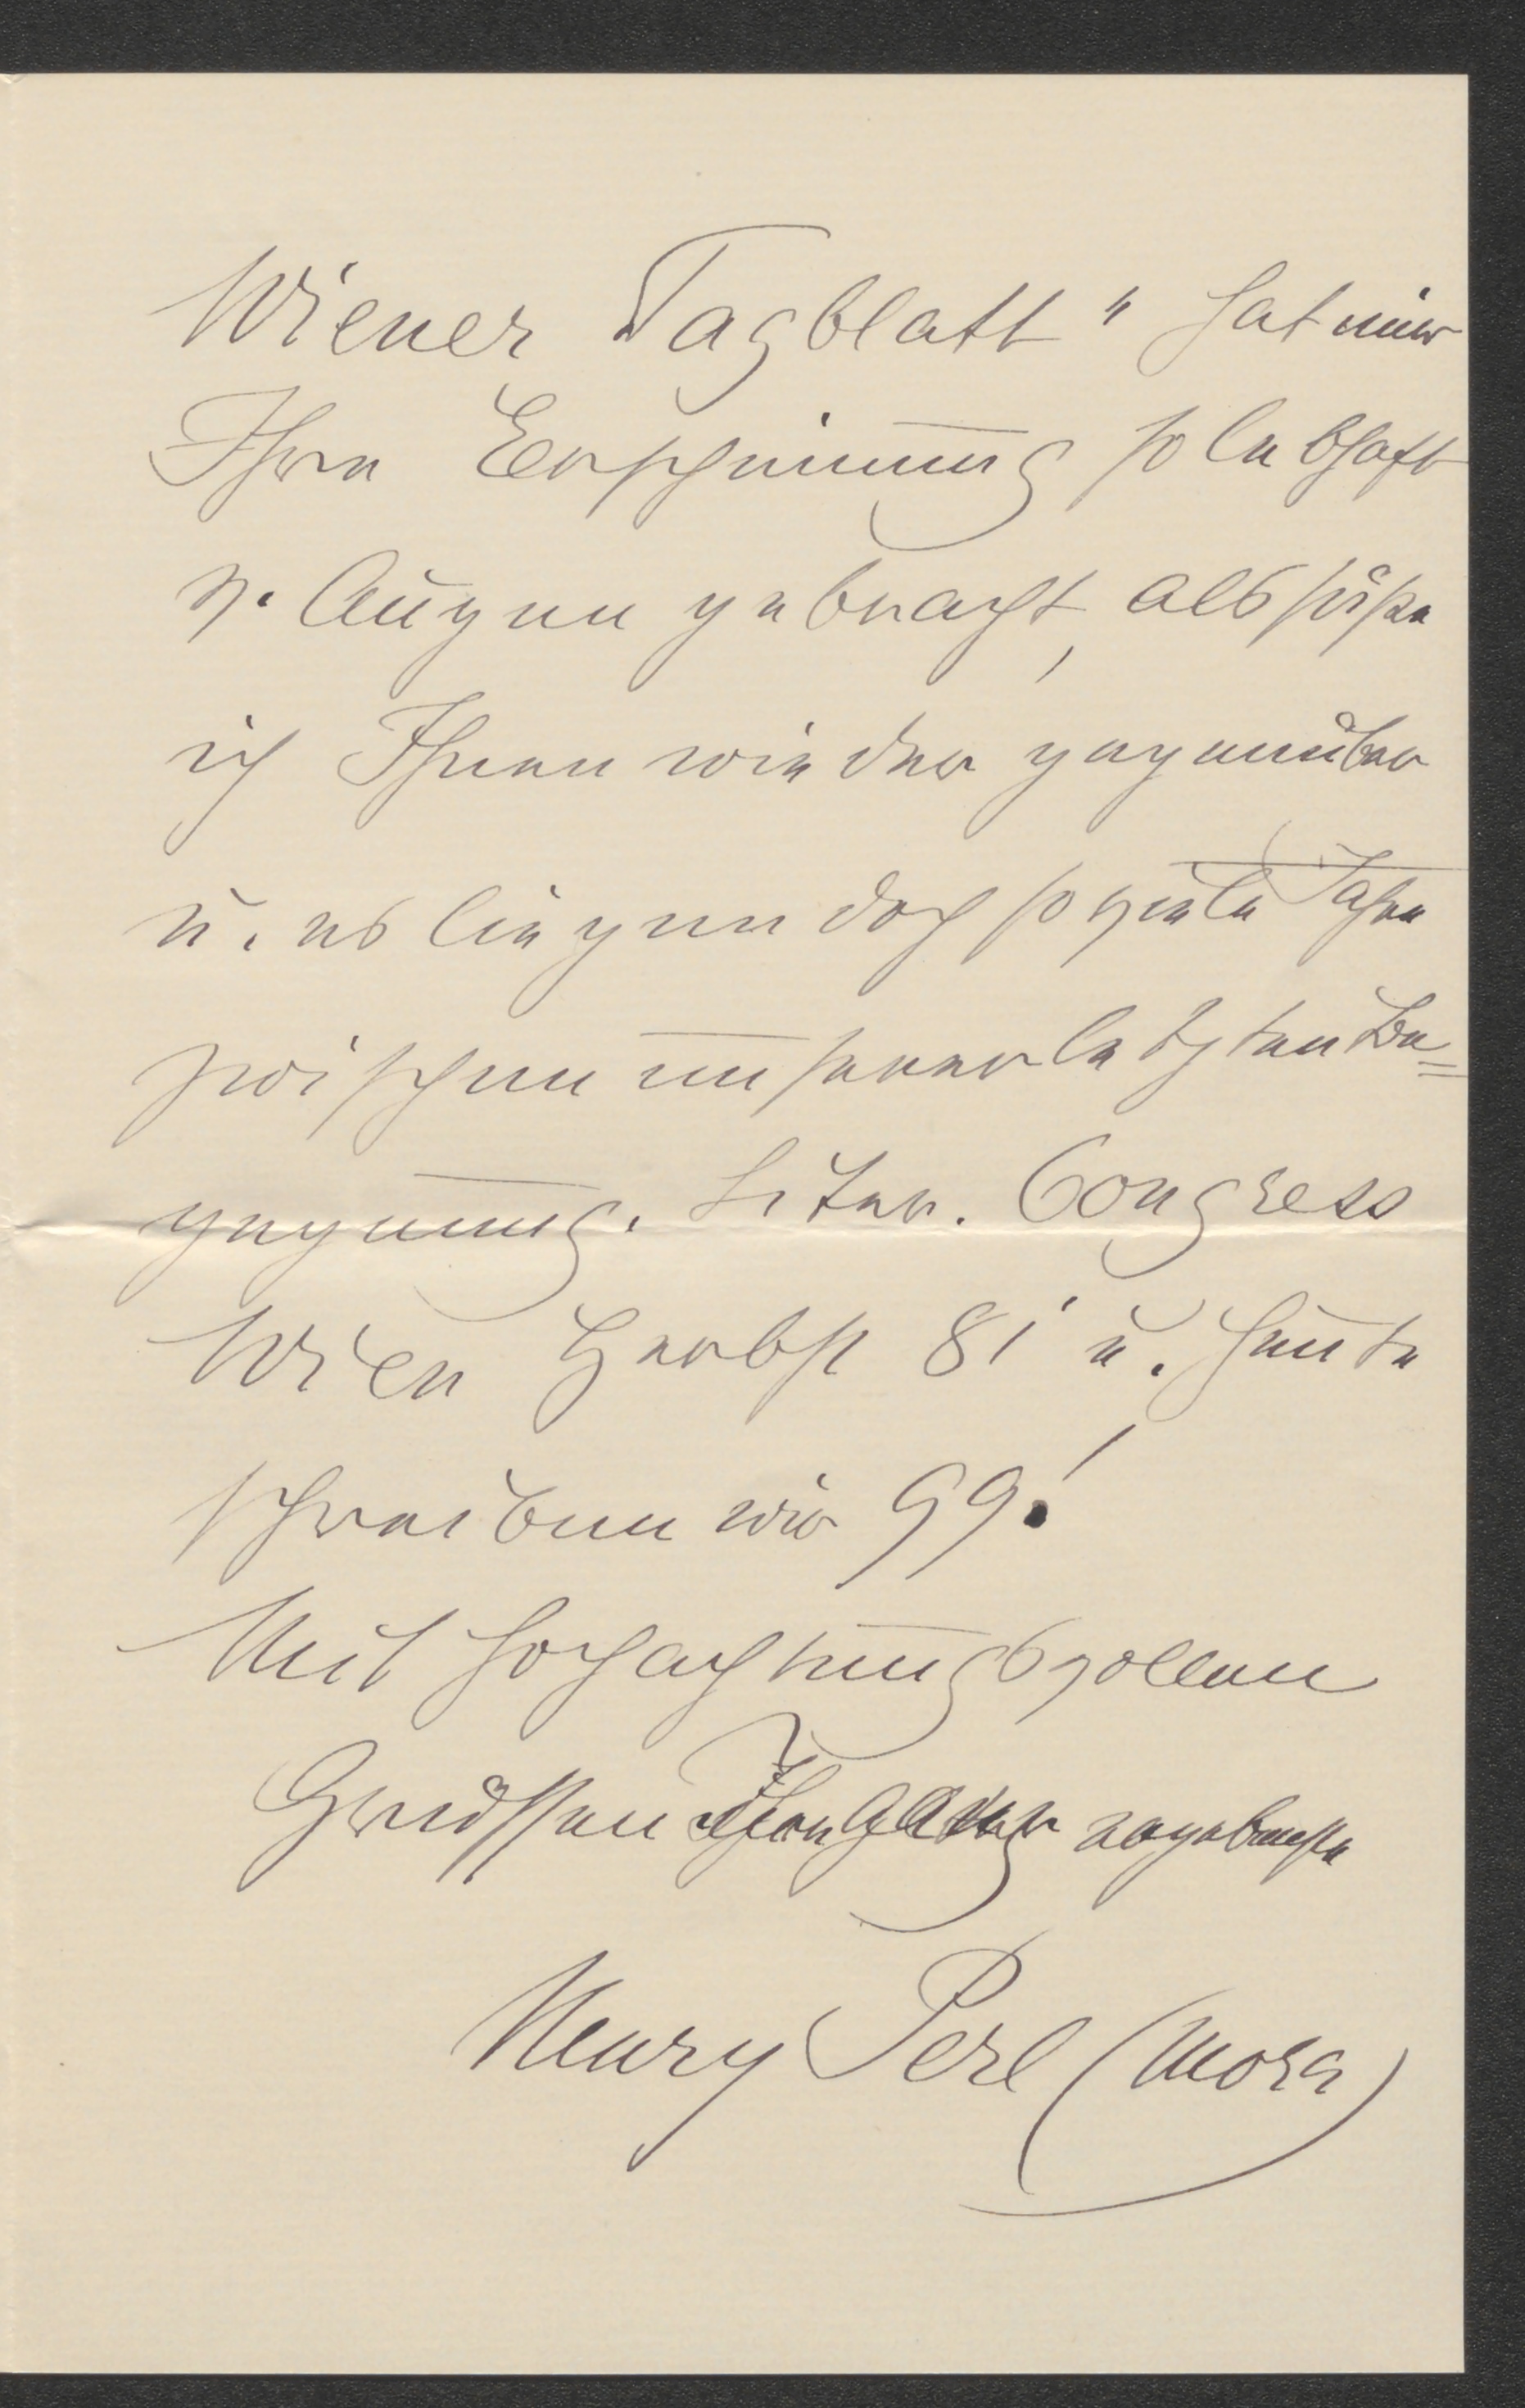 Wiener Tagblatt" hat mir
Ihre Erscheinung so lebhaft
v. Augen gebracht, als säße
ich Ihnen wieder gegenüber
u. es liegen doch so viele Jahre
zwischen unserer letzten Be=
gegnung. Liter. Congress
Wien Herbst 81 u. heute
schreiben wir 99!
Mit hochachtungsvollen
Grüssen Ihre ergebenste
Henry Perl (Mora)